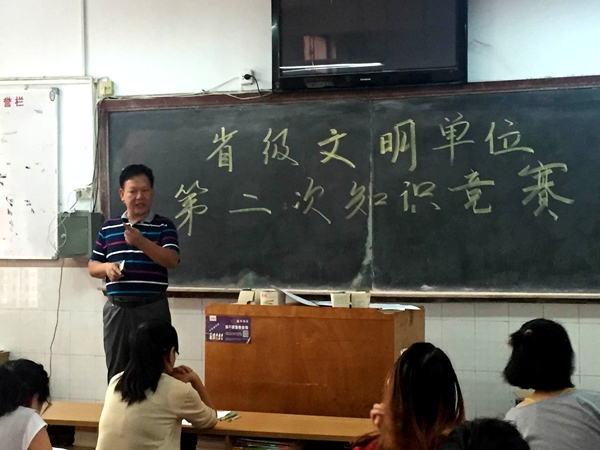 誉栏
省级文明单位
第二次知识竞赛